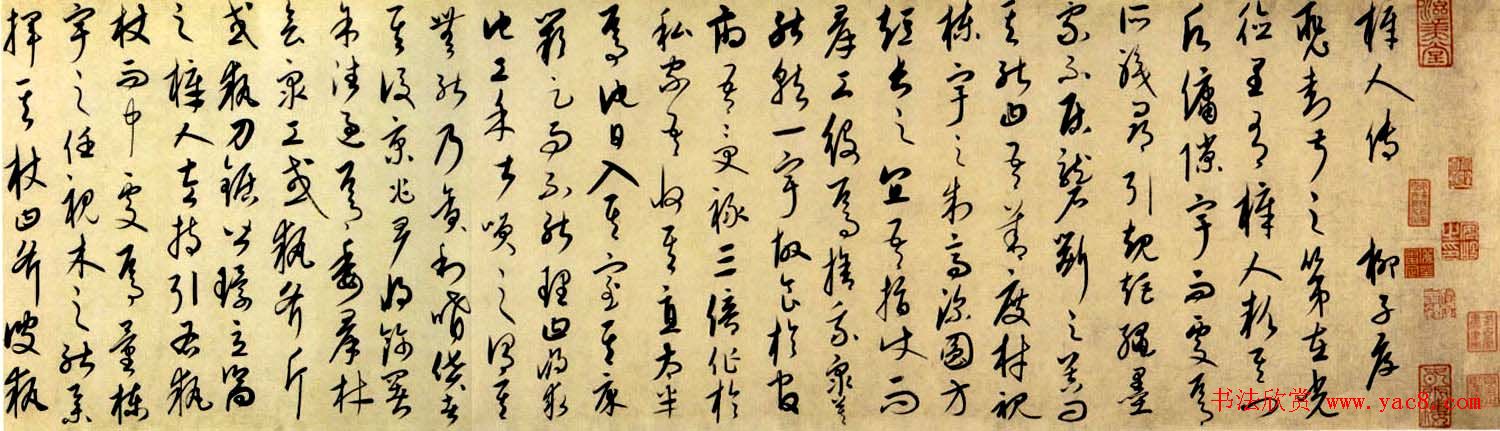 梓人傳 柳子厚
裴封叔之第在光
德里有梓人款其門
願傭隙宇而處焉
所職尋引規矩繩墨
家不居礱斲之器問
其能曰吾善度材視
棟宇之制高深圓方
短長之宜吾指使而
群工役焉捨我衆莫
能就一宇故食於官
府吾受祿三倍作於
私家吾收其直太半
焉他日入其室其床
闕足而不能理曰將求
他工余甚笑之謂其
無能乃貪利嗜貨者
其後京兆尹將飾官署
余往過焉委群材
會衆工或執斧斤
或執刀鋸皆環立嚮
之梓人左持引右執
杖而中處焉量棟
宇之任視木之能舉
揮其杖曰斧彼執
书法欣赏 www.yac8.com